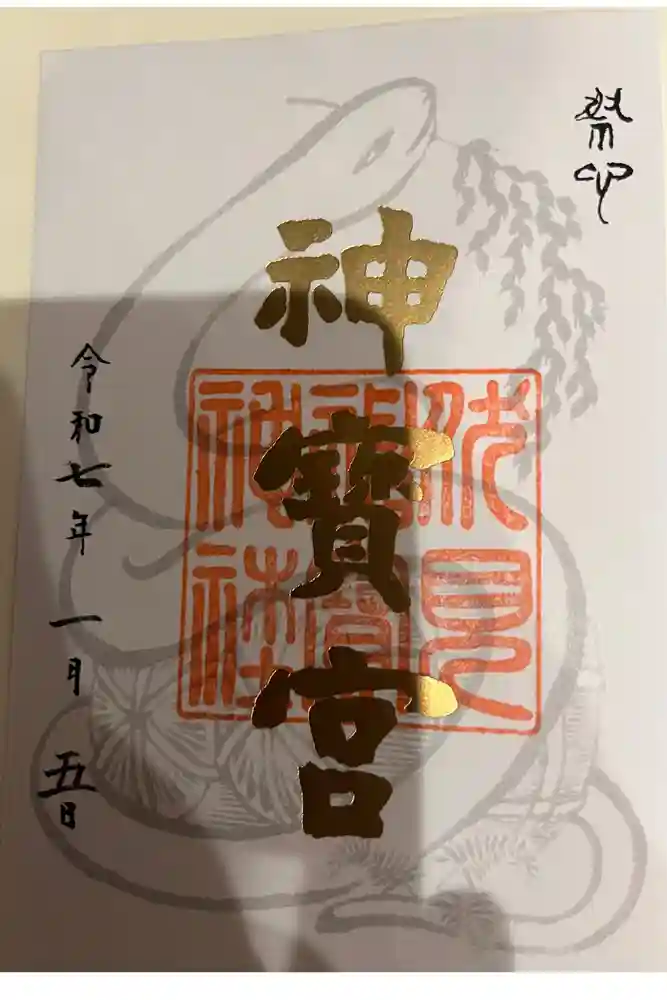 神寶宮
伏見
神寶
神社
令和七年 一月 五日